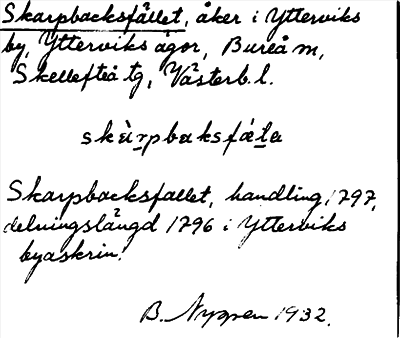 Skarpbacksfället, åker i Ytterviks
by, Ytterviks ägor, Bureå m,
Skellefteå tg, Västerb. l.
skàrpbaksfǽla
Skarpbacksfallet, handling 1797,
delningslängd 1796 i Ytterviks
byaskrin.
B. 1932.